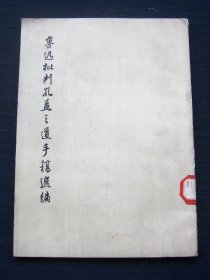 鲁迅批判孔孟之道手稿选编